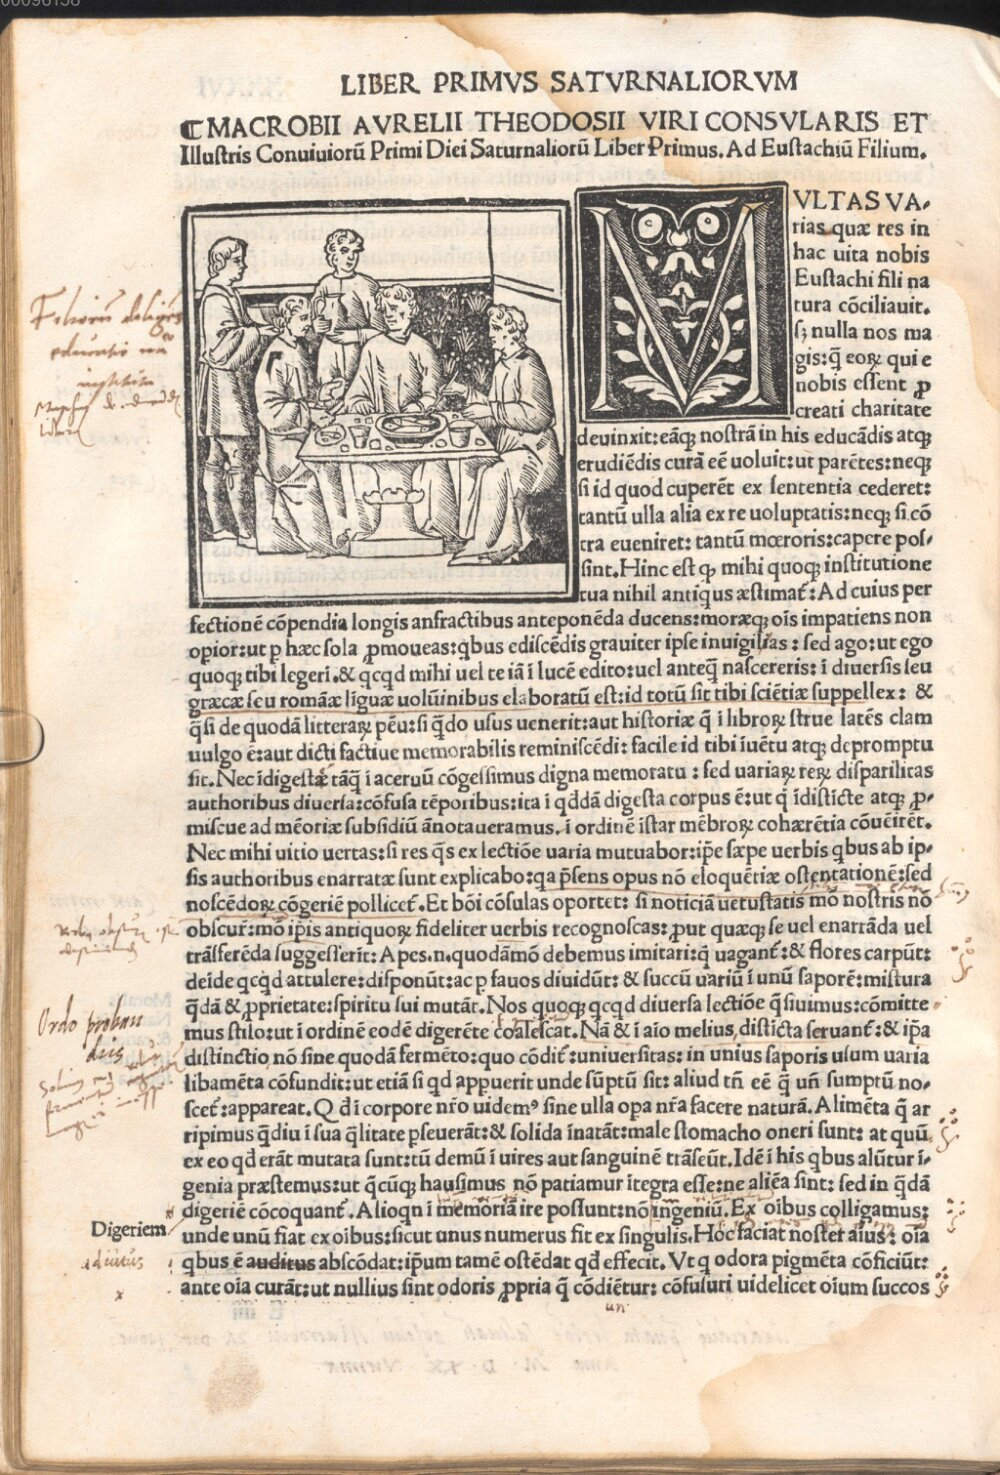 00096158
LIBER PRIMVS SATVRNALIORVM
¶MACROBII AVRELII THEODOSII VIRI CONSVLARIS ET
Illuſtris Conuiuiorū Primi Diei Saturnaliorū Liber Primus. Ad Euſtachiū Filium.
M
VLTAS VA-
rias quæ res in
hac uita nobis
Euſtachi fili na
tura cōciliauit.
ſꝫ nulla nos ma
gis:q̄ eoꝝ qui e
nobis eſſent ꝓ
creati charitate
deuinxit:eāqꝫ noſtrā in his educādis atqꝫ
erudiēdis curā eē uoluit:ut parētes:neqꝫ
ſi id quod cuperēt ex ſententia cederet:
tantū ulla alia ex re uoluptatis:neqꝫ ſi cō
tra eueniret: tantū mœroris:capere poſ-
ſint.Hinc eſt ꝙ mihi quoqꝫ inſtitutione
tua nihil antiqus æſtimat̄: Ad cuius per
fectionē cōpendia longis anfractibus anteponēda ducens:moræqꝫ oīs impatiens non
opior:ut ꝑ hæc ſola ꝓmoueas:qbus ediſcēdis grauiter ipſe inuigilias : ſed ago:ut ego
quoqꝫ tibi legeri.& qcqd mihi uel te iā ī lucē edito:uel anteq̄ naſcereris: ī diuerſis ſeu
græcæ ſeu romāæ līguæ uolūinibus elaboratū eſt:id totū ſit tibi ſciētiæ ſuppellex: &
q̄ſi de quodā litteraꝝ pēu:ſi q̄do uſus uenerit:aut hiſtoriæ q̄ ī libroꝝ ſtrue latēs clam
uulgo ē:aut dicti factiue memorabilis reminiſcēdi: facile id tibi īuētu atqꝫ depromptu
ſit. Nec īdigeſtæ tāq̄ ī aceruū cōgeſſimus digna memoratu : ſed uariaꝝ reꝝ diſparilitas
authoribus diuerſa:cōfuſa tēporibus:ita ī qddā digeſta corpus ē:ut q̄ īdiſticte atqꝫ ꝓ-
miſcue ad mēoriæ ſubſidiū ānotaueramus. ī ordinē īſtar mēbroꝝ cohærētia cōueīrēt.
Nec mihi uitio uertas:ſi res q̄s ex lectiōe uaria mutuabor:ip̄e ſæpe uerbis qbus ab ip-
ſis authoribus enarratæ ſunt explicabo:qa p̄ſens opus nō eloquētiæ oſtentationē:ſed
noſcēdoꝝ cōgeriē pollicet̄. Et bōi cōſulas oportet: ſi noticiā uetuſtatis mō noſtris nō
obſcur̄:mō ip̄is antiquoꝝ fideliter uerbis recognoſcas:ꝓut quæqꝫ ſe uel enarrāda uel
trāſferēda ſuggeſſerit: Apes.n.quodāmō debemus imitari:q̄ uagant̄:& flores carpūt:
deīde qcqd attulere:diſponūt:ac ꝑ fauos diuidūt: & ſuccū uariū ī unū ſaporē:miſtura
q̄dā & ꝓprietate:ſpiritu ſui mutāt. Nos quoqꝫ qcqd diuerſa lectiōe q̄ſiuimus:cōmitte
mus ſtilo:ut ī ordinē eodē digerēte coaleſcat. Nā & ī aīo melius diſticta ſeruant̄:& ip̄a
diſtinctio nō ſine quodā fermēto:quo cōdit̄:uniuerſitas: in unius ſaporis uſum uaria
libamēta cōfundit:ut etiā ſi qd appuerit unde ſūptū ſit: aliud tn̄ eē q̄ un̄ ſumptū no-
ſcet̄:appareat. Q d̄ī corpore nr̄o uidemꝰ ſine ulla opa nr̄a facere naturā. Alimēta q̄ ar
ripimus q̄diu ī ſua q̄litate ꝑſeuerāt:& ſolida īnatāt:male ſtomacho oneri ſunt: at quū
ex eo qd erāt mutata ſunt:tū demū ī uires aut ſanguinē trāſeūt. Idē ī his qbus alūtur ī-
genia præſtemus:ut q̄cūqꝫ hauſimus nō patiamur ītegra eſſe:ne aliēa ſint: ſed in q̄dā
digeriē cōcoquant̄. Alioqn ī memoriā ire poſſunt:nō īngeniū. Ex oībus colligamus:
unde unū fiat ex oībus:ſicut unus numerus fit ex ſingulis. Hoc faciat noſter aīus: oīa
qbus ē auditus abſcōdat:ip̄um tamē oſtēdat qd effecit. Vt q odora pigmēta cōficiūt:
ante oīa curāt:ut nullius ſint odoris ꝓpria q̄ cōdiētur: cōfuſuri uidelicet oīum ſuccos
Ordo proban
dus
Digeriem
adiutus
x
un